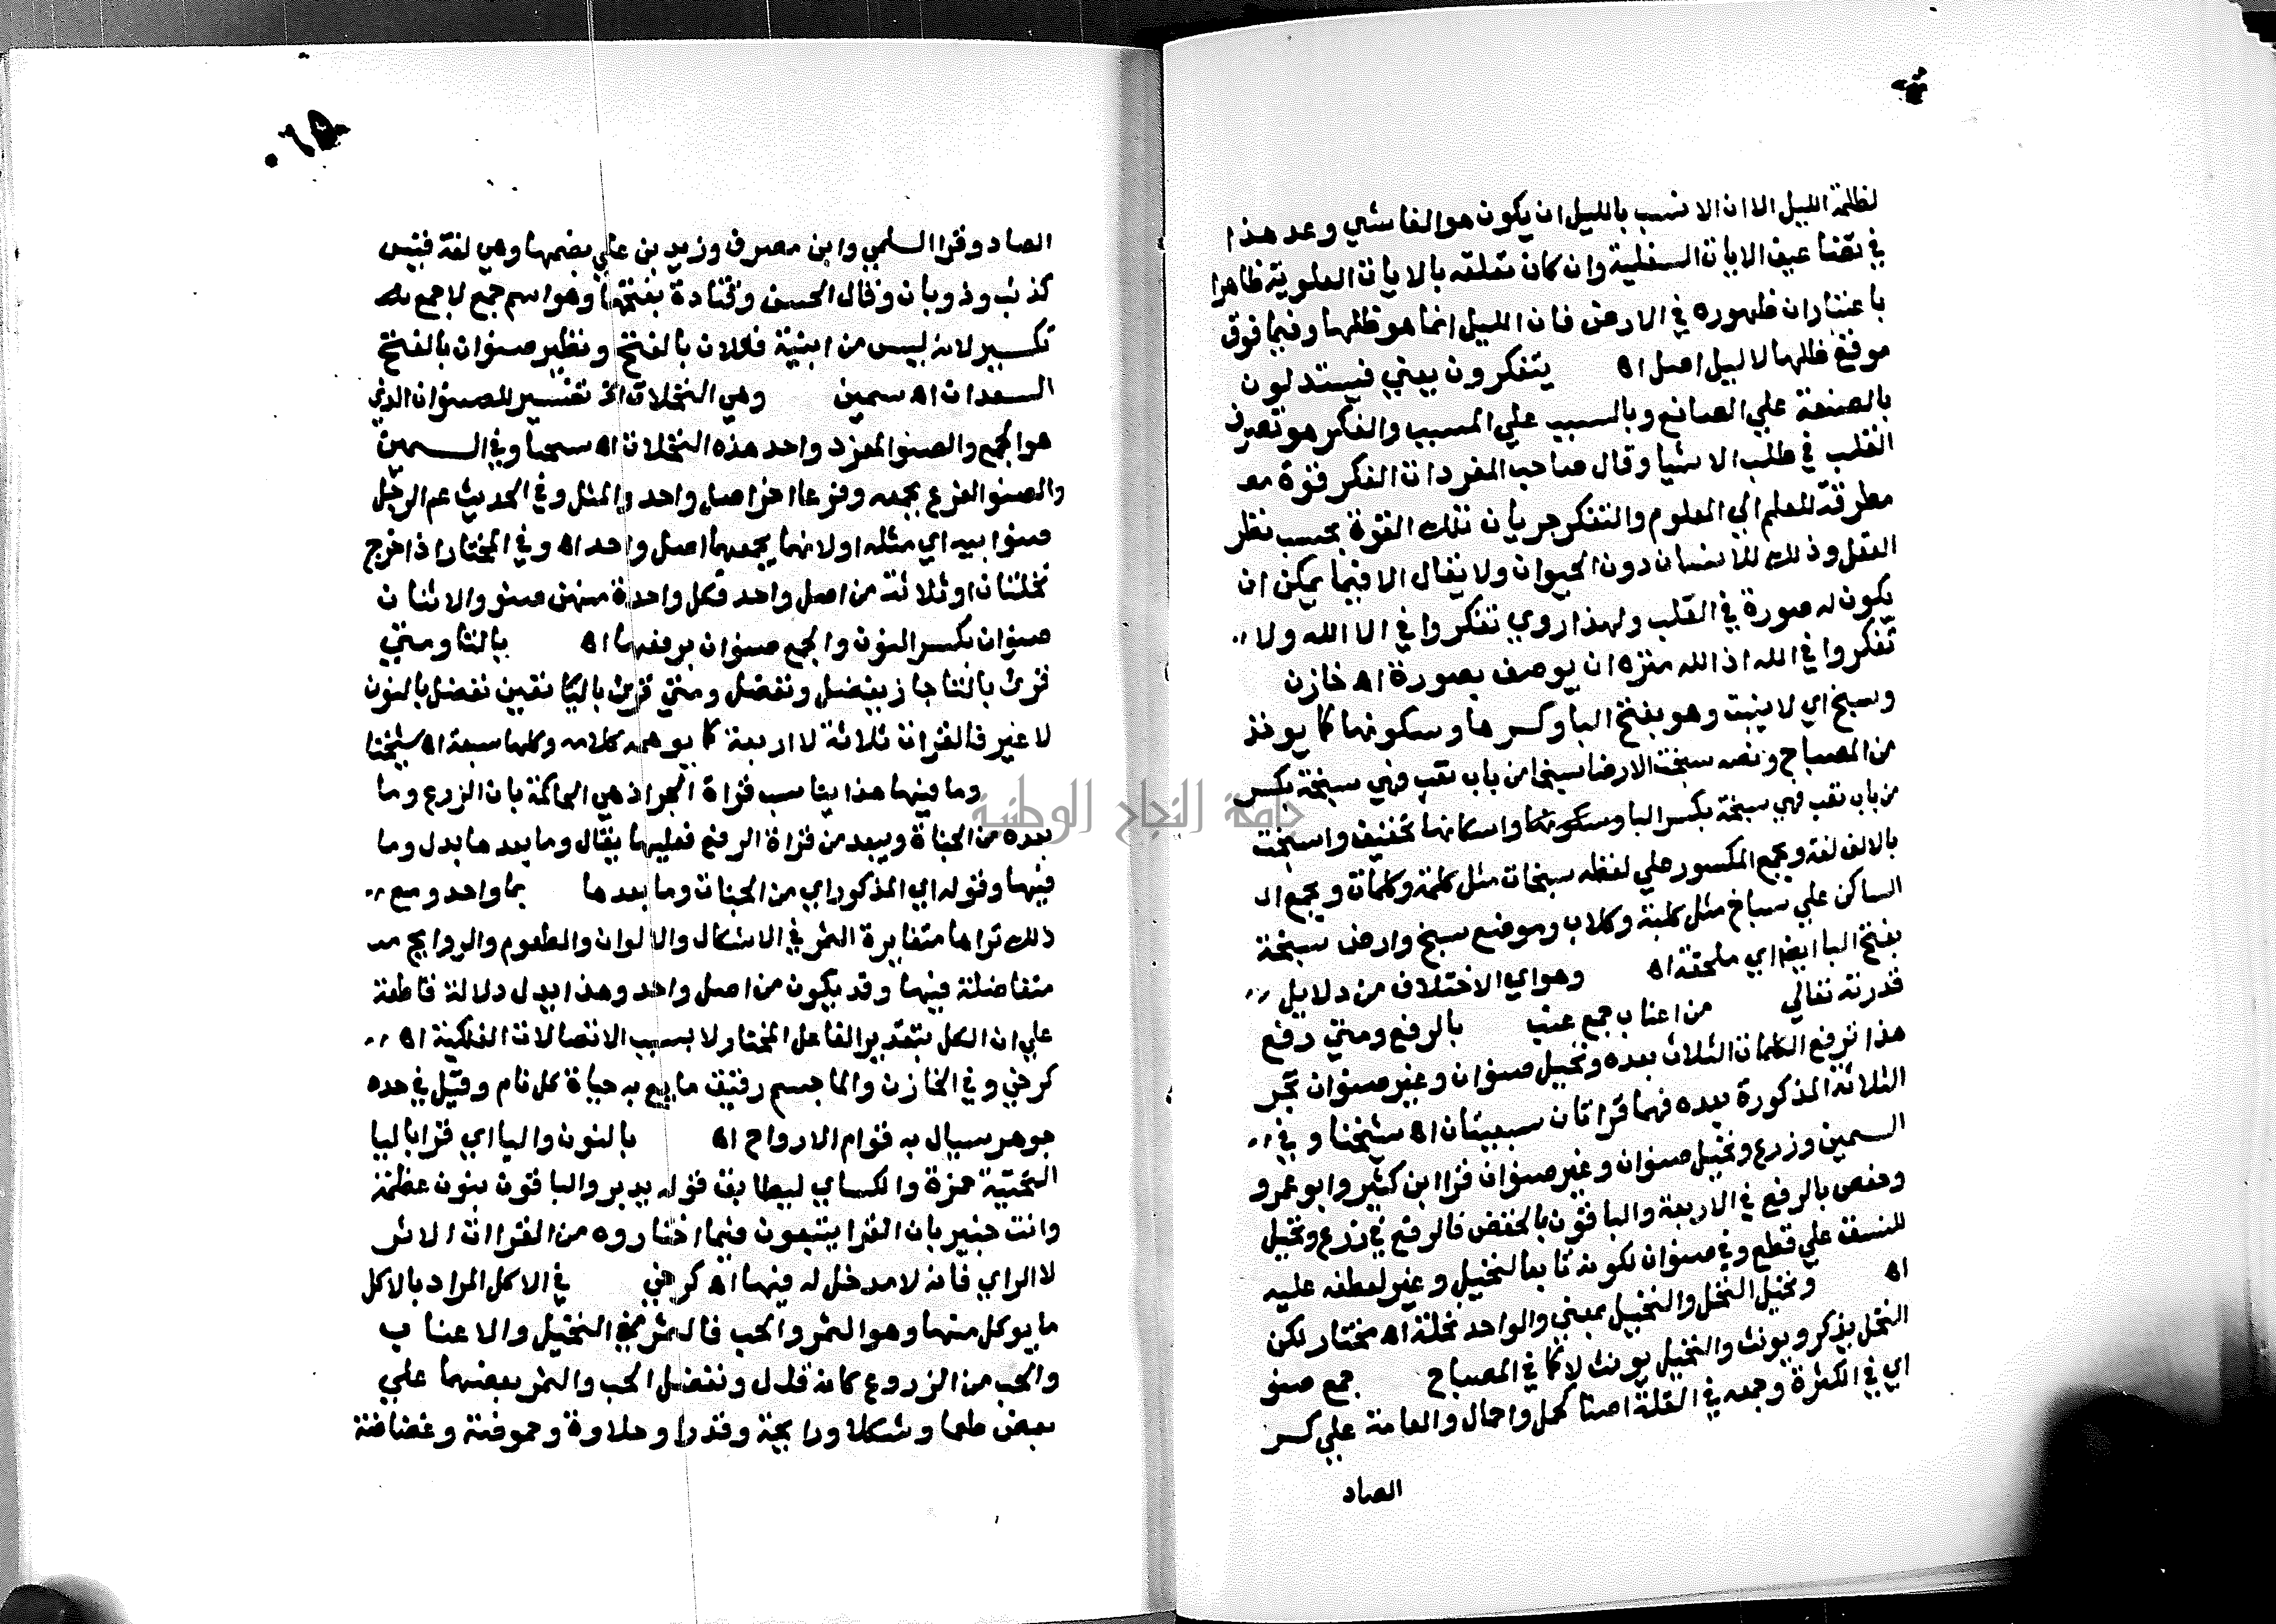 لظلمة الليل الا ان الانسب بالليل ان يكون هو الغاشي وعد هذا
في تضاعيف الايات السفلية وان كان تعلقه بالايات العلوية ظاهرا
باعتبار ان ظهوره في الارض فان الليل انما هو ظلها وفيما فوق
موقع ظلها لا ليل اصلا اه يتفكرون يعني فيستدلون
بالصنعة علي الصانع وبالسبب علي المسبب والفكر هو تصرف
القلب في طلب الاشيا وقال صاحب المفردات الفكر قوة
مطرقة للعلم الي المعلوم والتفكر جريان تلك القوة بحسب نظر
العقل وذلك للانسان دون الحيوان ولا يقال الا فيما يمكن ان
يكون له صورة في القلب ولهذا روي تفكروا في الا الله ولا
تفكروا في الله اذ الله منزه ان يوصف بصورة اه خازن
وسبخ اي لا ينبت وهو بفتح البا وكسرها وسكونها كما يوخذ
من المصباح ونصه سبخت الارض سبخا من باب تعب فهي سبخة بكسر
من باب تعب فهي سبخة بكسر البا وسكونها واسكانها تخفيف واسبخت
بالالف لغة ويجمع المكسور علي لفظه سبخات مثل كلمة وكلمات ويجمع ال
الساكن علي سباخ مثل كلبة وكلاب وموضع سبخ وارض سبخة
بفتح البا ايضا اي ملحة اه وهو اي الاختلاف من دلايل
قدرته تعالي من اعناب جمع عنب بالرفع ومتي رفع
هذا ترفع الكلمات الثلاث بعده ونخيل صنوان وغير صنوان تجر
الثلاثة المذكورة بعده فهما قراتان سبعيتان اه شيخنا وفي
السمين وزرع ونخيل صنوان وغير صنوان قرا ابن كثير وابو عمرو
وحفص بالرفع في الاربعة والباقون بالخفض فالرفع في زرع ونخيل
للنسق علي قطع وفي صنوان لكونه تابعا لنخيل وغير لعطفه عليه
اه ونخيل النخل والنخيل بمعني والواحد نخلة اه مختار لكن
النخل يذكر ويونث والنخيل يونث لا كما في المصباح جمع صنو
اي في الكثرة وجمعه في القلة اصنا كحمل واحمال والعامة علي كسر
الصاد
٦٥
الصاد وقرا السلمي وابن مصرف وزيد بن علي بضمها وهي لغة قيس
كذئب وذوبان وقال الحسن وقتادة بفتحها وهو اسم جمع لا جمع
تكسير لانه ليس من ابنية فعلان بالفتح ونظير صنوان بالفتح
السعدان اه سمين وهي النخلات الخ تفسير للصنوان الذي
هو الجمع والصنو المفرد واحد هذه النخلات اه شيخنا وفي السمين
والصنو الفرع يجمعه وفرعا اخر اصل واحد والمثل وفي الحديث عم الرجل
صنو ابيه اي مثله او لانهما يجمعهما اصل واحد اه وفي المختار اذا خرج
نخلتان او ثلاثة من اصل واحد فكل واحدة منهن صنو والاثنان
صنوان بكسر النون والجمع صنوان برفعها اه بالتا ومتي
قرئ بالتا جاز يفضل ونفضل ومتي قرئ باليا تعين نفضل بالنون
لا غير فالقرات ثلاثة لا اربعة كما يوهمه كلامه وكلها سبعة اه شيخنا
وما فيها هذا يناسب قراة الجر اذ هي الحاكمة بان الزرع وما
بعده من الجناة ويبعد من قراة الرفع فعليها يقال وما بعدها بدل وما
فيها وقوله اي المذكور اي من الجنات وما بعدها بما واحد ومع
ذلك تراها متغايرة الثمر في الاشكال والالوان والطعوم والروايح
متفاضلة فيها وقد يكون من اصل واحد وهذا يدل دلالة قاطعة
علي ان الكل بتقدير الفاعل المختار لا بسبب الاتصالات الفلكية اه
كرخي وفي الخازن والما جسم رقيق مايع به حياة كل نام وقيل في حده
جوهر سيال به قوام الارواح اه بالنون واليا اي قرا باليا
التحتية حمزة والكساي ليطابق قوله يدبر والباقون بنون عظمة
وانت خبير بان القرا يتبعون فيما اختاروه من القراات الاثر
لا الراي فانه لا مدخل له فيها اه كرخي في الاكل المراد بالاكل
ما يوكل منها وهو الثمر والحب فالثمر من النخيل والاعناب
والحب من الزروع كانه قال ونفضل الحب والثمر بعضها علي
بعض طعما وشكلا ورايحة وقدرا وحلاوة وحموضة وغضاضة
جامعة النجاح الوطنية